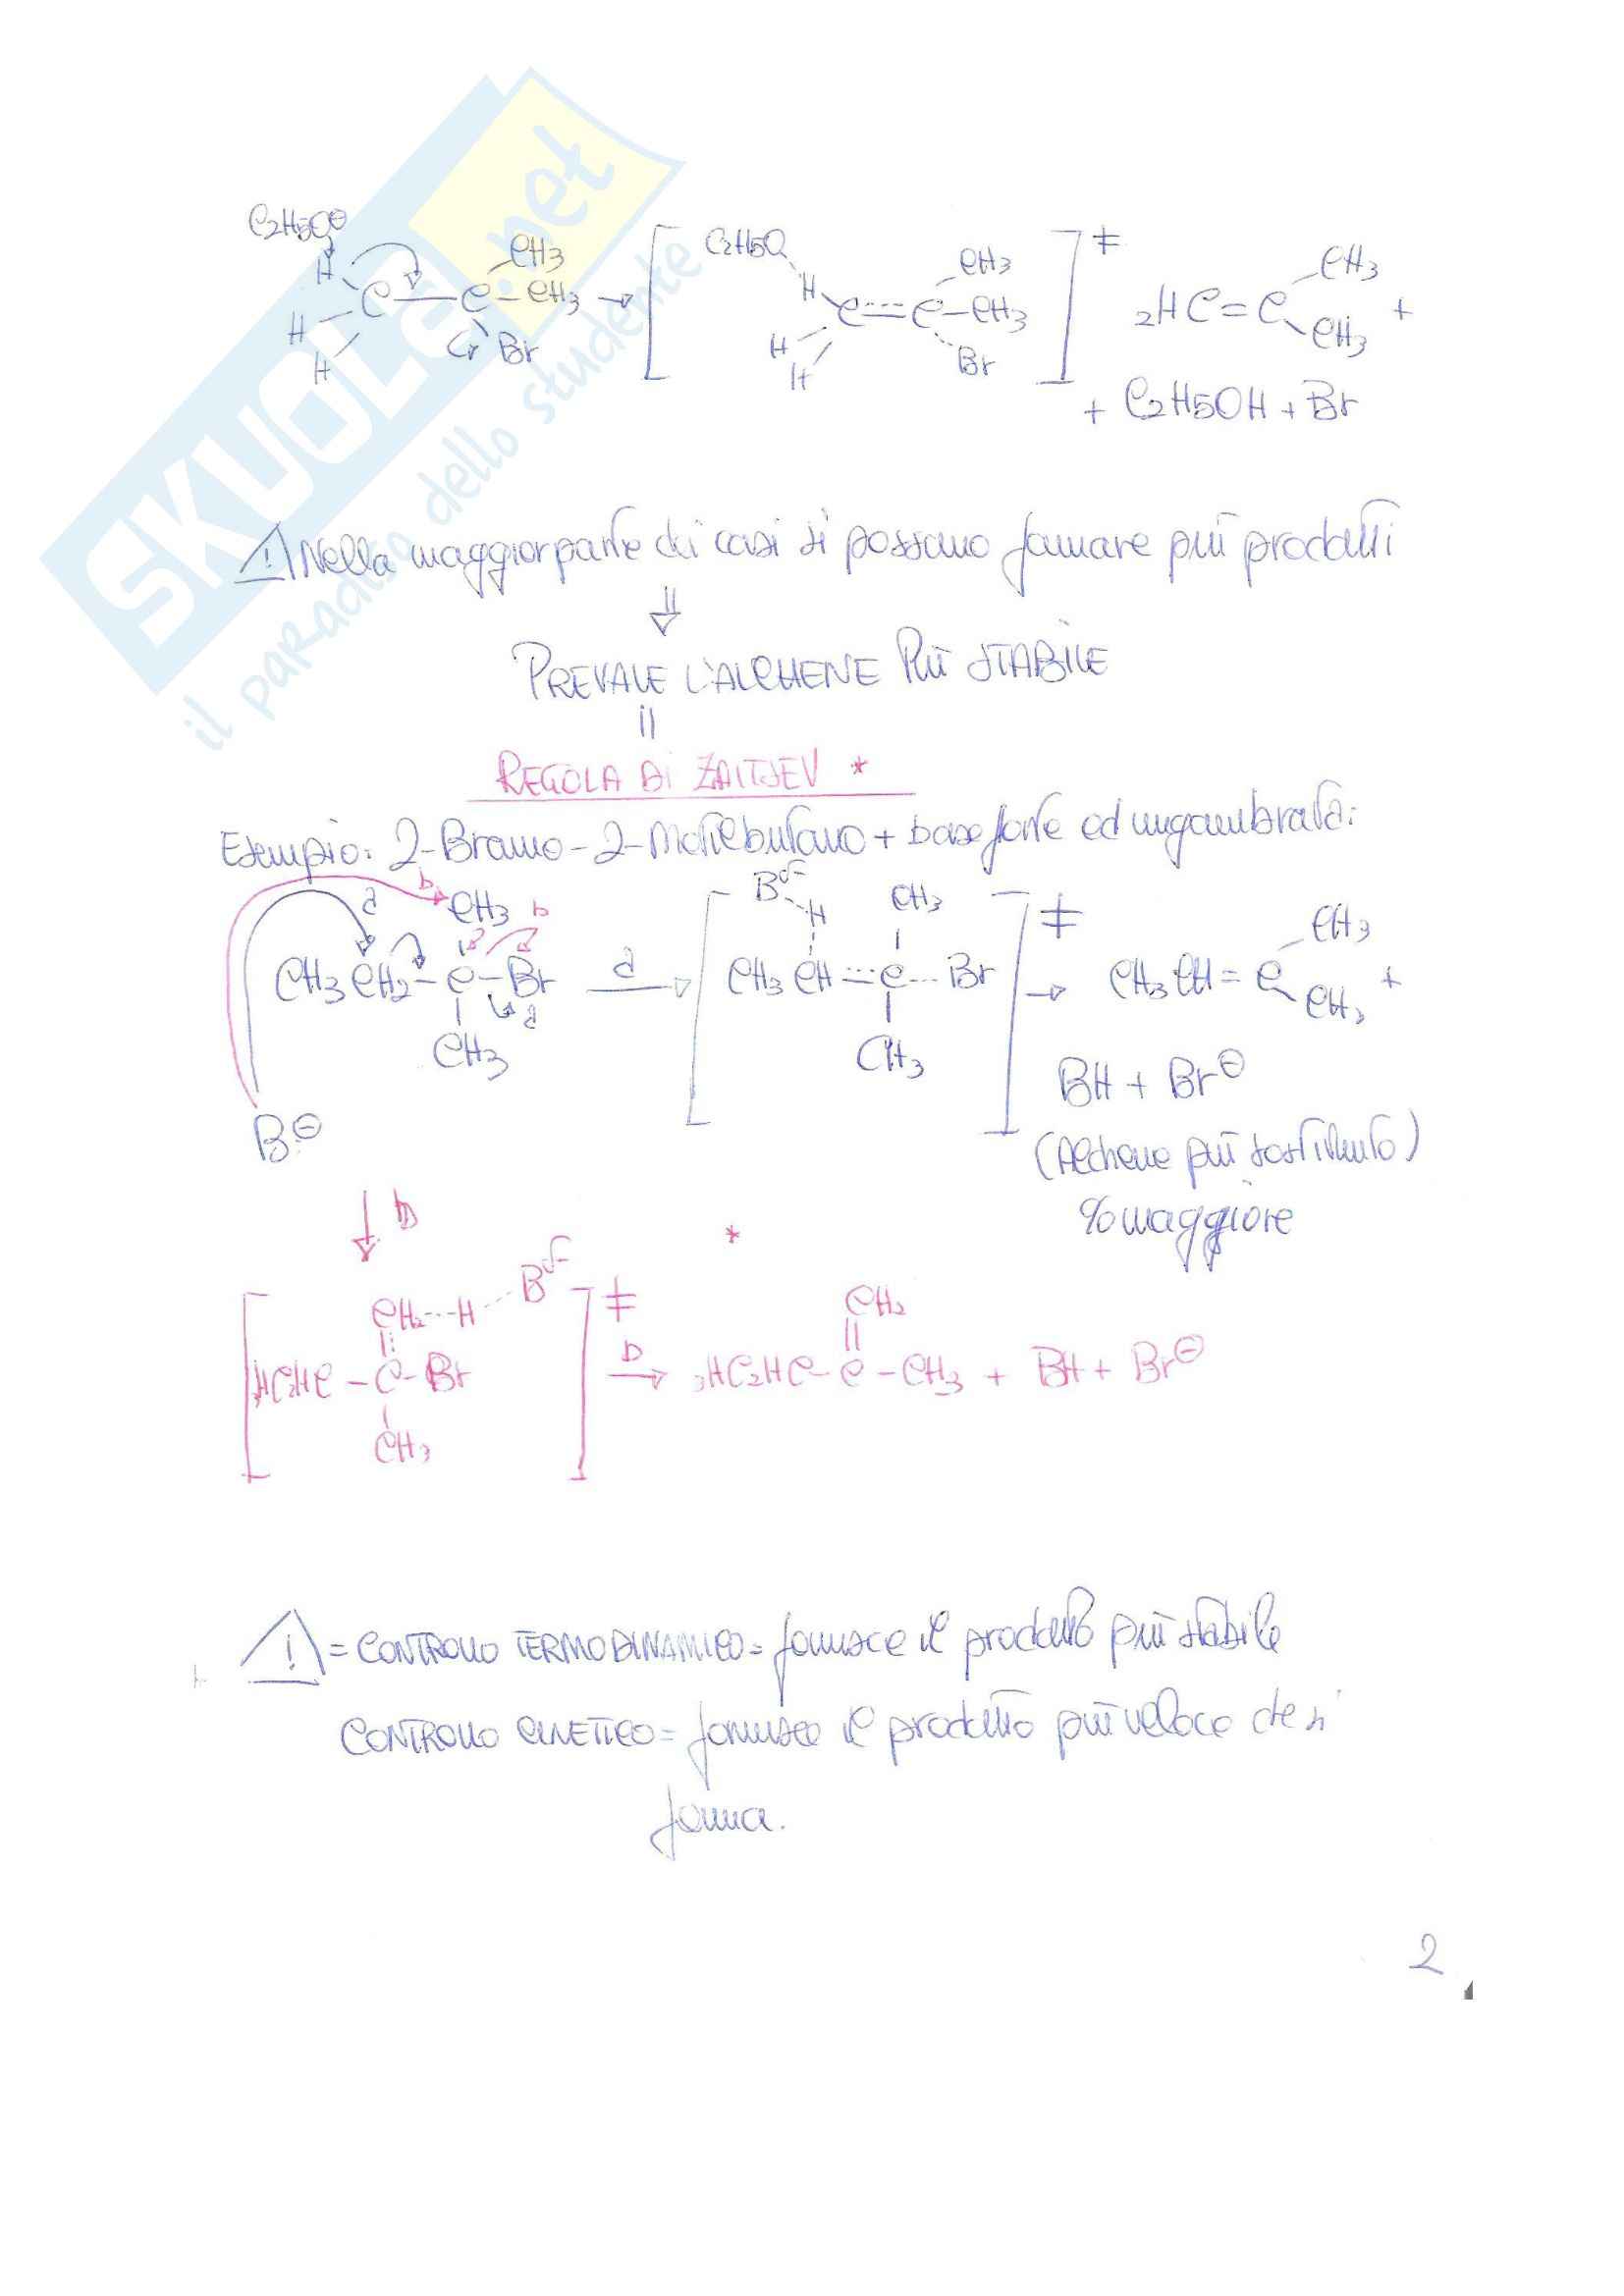 C2H5O⊖
H
H
H
C — C
CH3
CH3
Br
→
C2H5O
H
H
H
C C
CH3
CH3
Br
≠
2HC=C
CH3
CH3
+
+ C2H5OH + Br
SKUOLA.net
il paradiso dello studente
! Nella maggiorparte dei casi si possono formare più prodotti
⇓
PREVALE L'ALCHENE PIÙ STABILE
REGOLA DI ZAITSEV *
Esempio: 2-Bromo-2-Metilbutano + base forte ed ingombrata:
b
a
CH3
b
CH3CH2-C-Br
a
CH3
B⊖
a
→
Bδ-
H
CH3
CH3CH C Br
CH3
≠
→
CH3CH=C
CH3
CH3
+
BH + Br⊖
(Alchene più sostituito)
% maggiore
b
*
CH2 H Bδ-
3HC2HC-C-Br
CH3
≠
b
→
CH2
3HC2HC-C-CH3 + BH + Br⊖
! = CONTROLLO TERMODINAMICO = fornisce il prodotto più stabile
CONTROLLO CINETICO = fornisce il prodotto più veloce che si
forma.
2